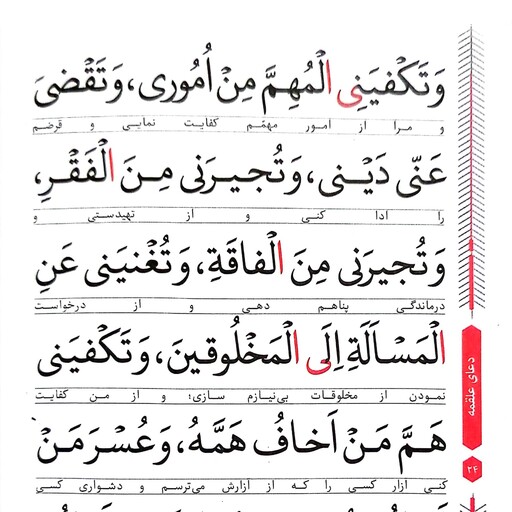 وَتَكْفيَنِى الْمُهِمَّ مِنْ اُمُورى، وَتَقْضىَ
و مرا از امور مهمّم کفایت نمایی و قرضم
عَنّى دَيْنى، وَتُجيرَنى مِنَ الْفَقْرِ،
را ادا کنی و از تهیدستی و
وَتُجيرَنى مِنَ الْفاقَةِ، وَتُغْنيَنى عَنِ
درماندگی پناهم دهی و از درخواست
الْمَسْاَلَةِ اِلَى الْمَخْلُوقينَ، وَتَكْفيَنى
نمودن از مخلوقات بی‌نیازم سازی؛ و از من کفایت
هَمَّ مَنْ اَخافُ هَمَّهُ، وَعُسْرَ مَنْ
کنی آزار کسی را که از آزارش می‌ترسم و دشواری کسی
دعای علقمه
۲۴